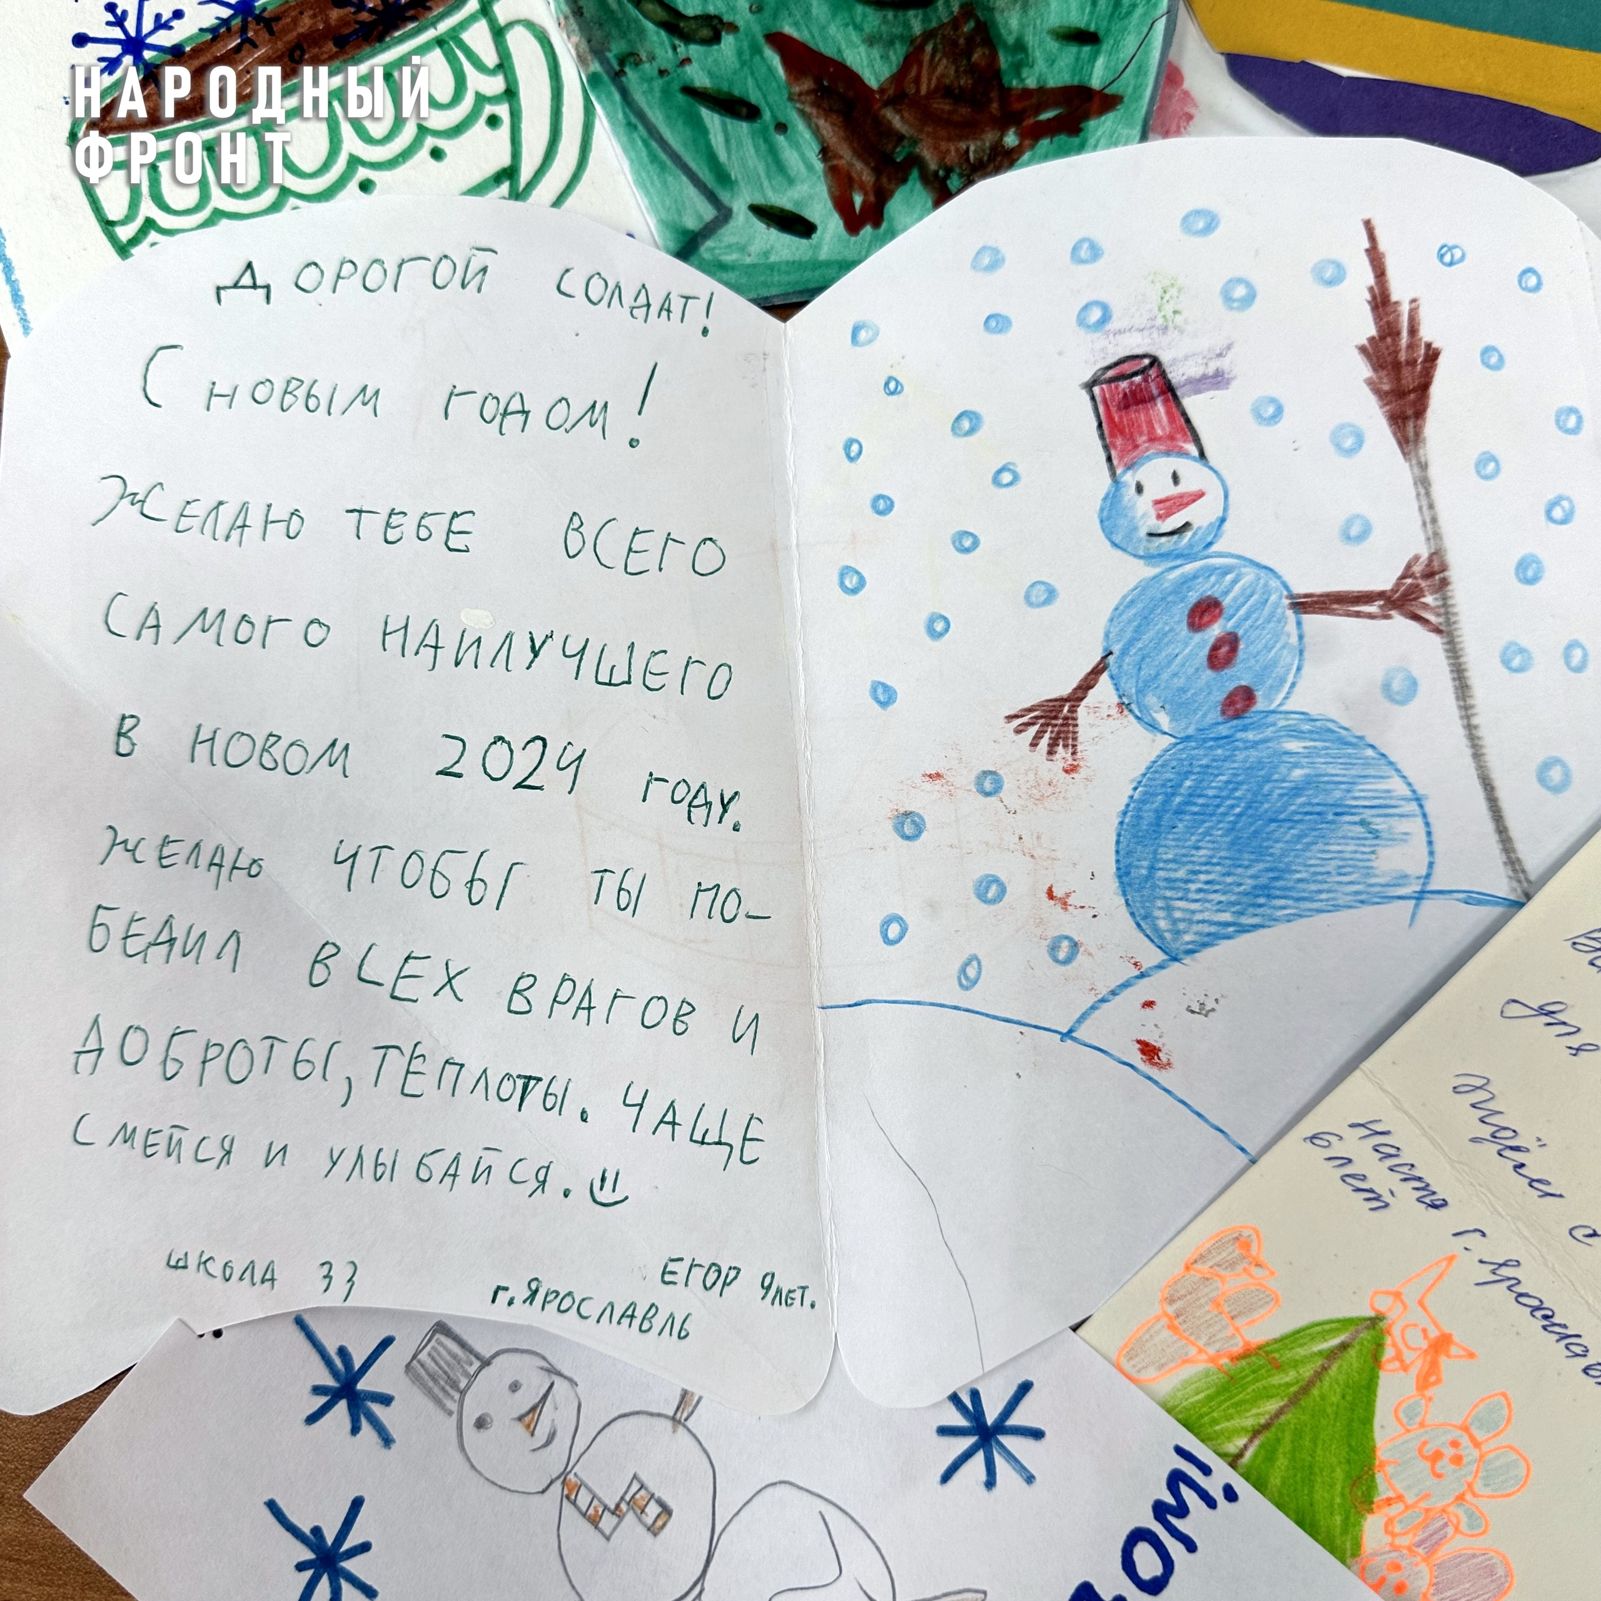 НАРОДНЫЙ
ФРОНТ
ДОРОГОЙ СОЛДАТ!
С НОВЫМ ГОДОМ!
ЖЕЛАЮ ТЕБЕ ВСЕГО
САМОГО НАИЛУЧШЕГО
В НОВОМ 2024 ГОДУ.
ЖЕЛАЮ ЧТОБЫ ТЫ ПО-
БЕДИЛ ВСЕХ ВРАГОВ И
ДОБРОТЫ, ТЕПЛОТЫ. ЧАЩЕ
СМЕЙСЯ И УЛЫБАЙСЯ.
ШКОЛА 33
г. ЯРОСЛАВЛЬ
ЕГОР 9 ЛЕТ.
для
ждём с
Настя г. Ярославл
6 лет